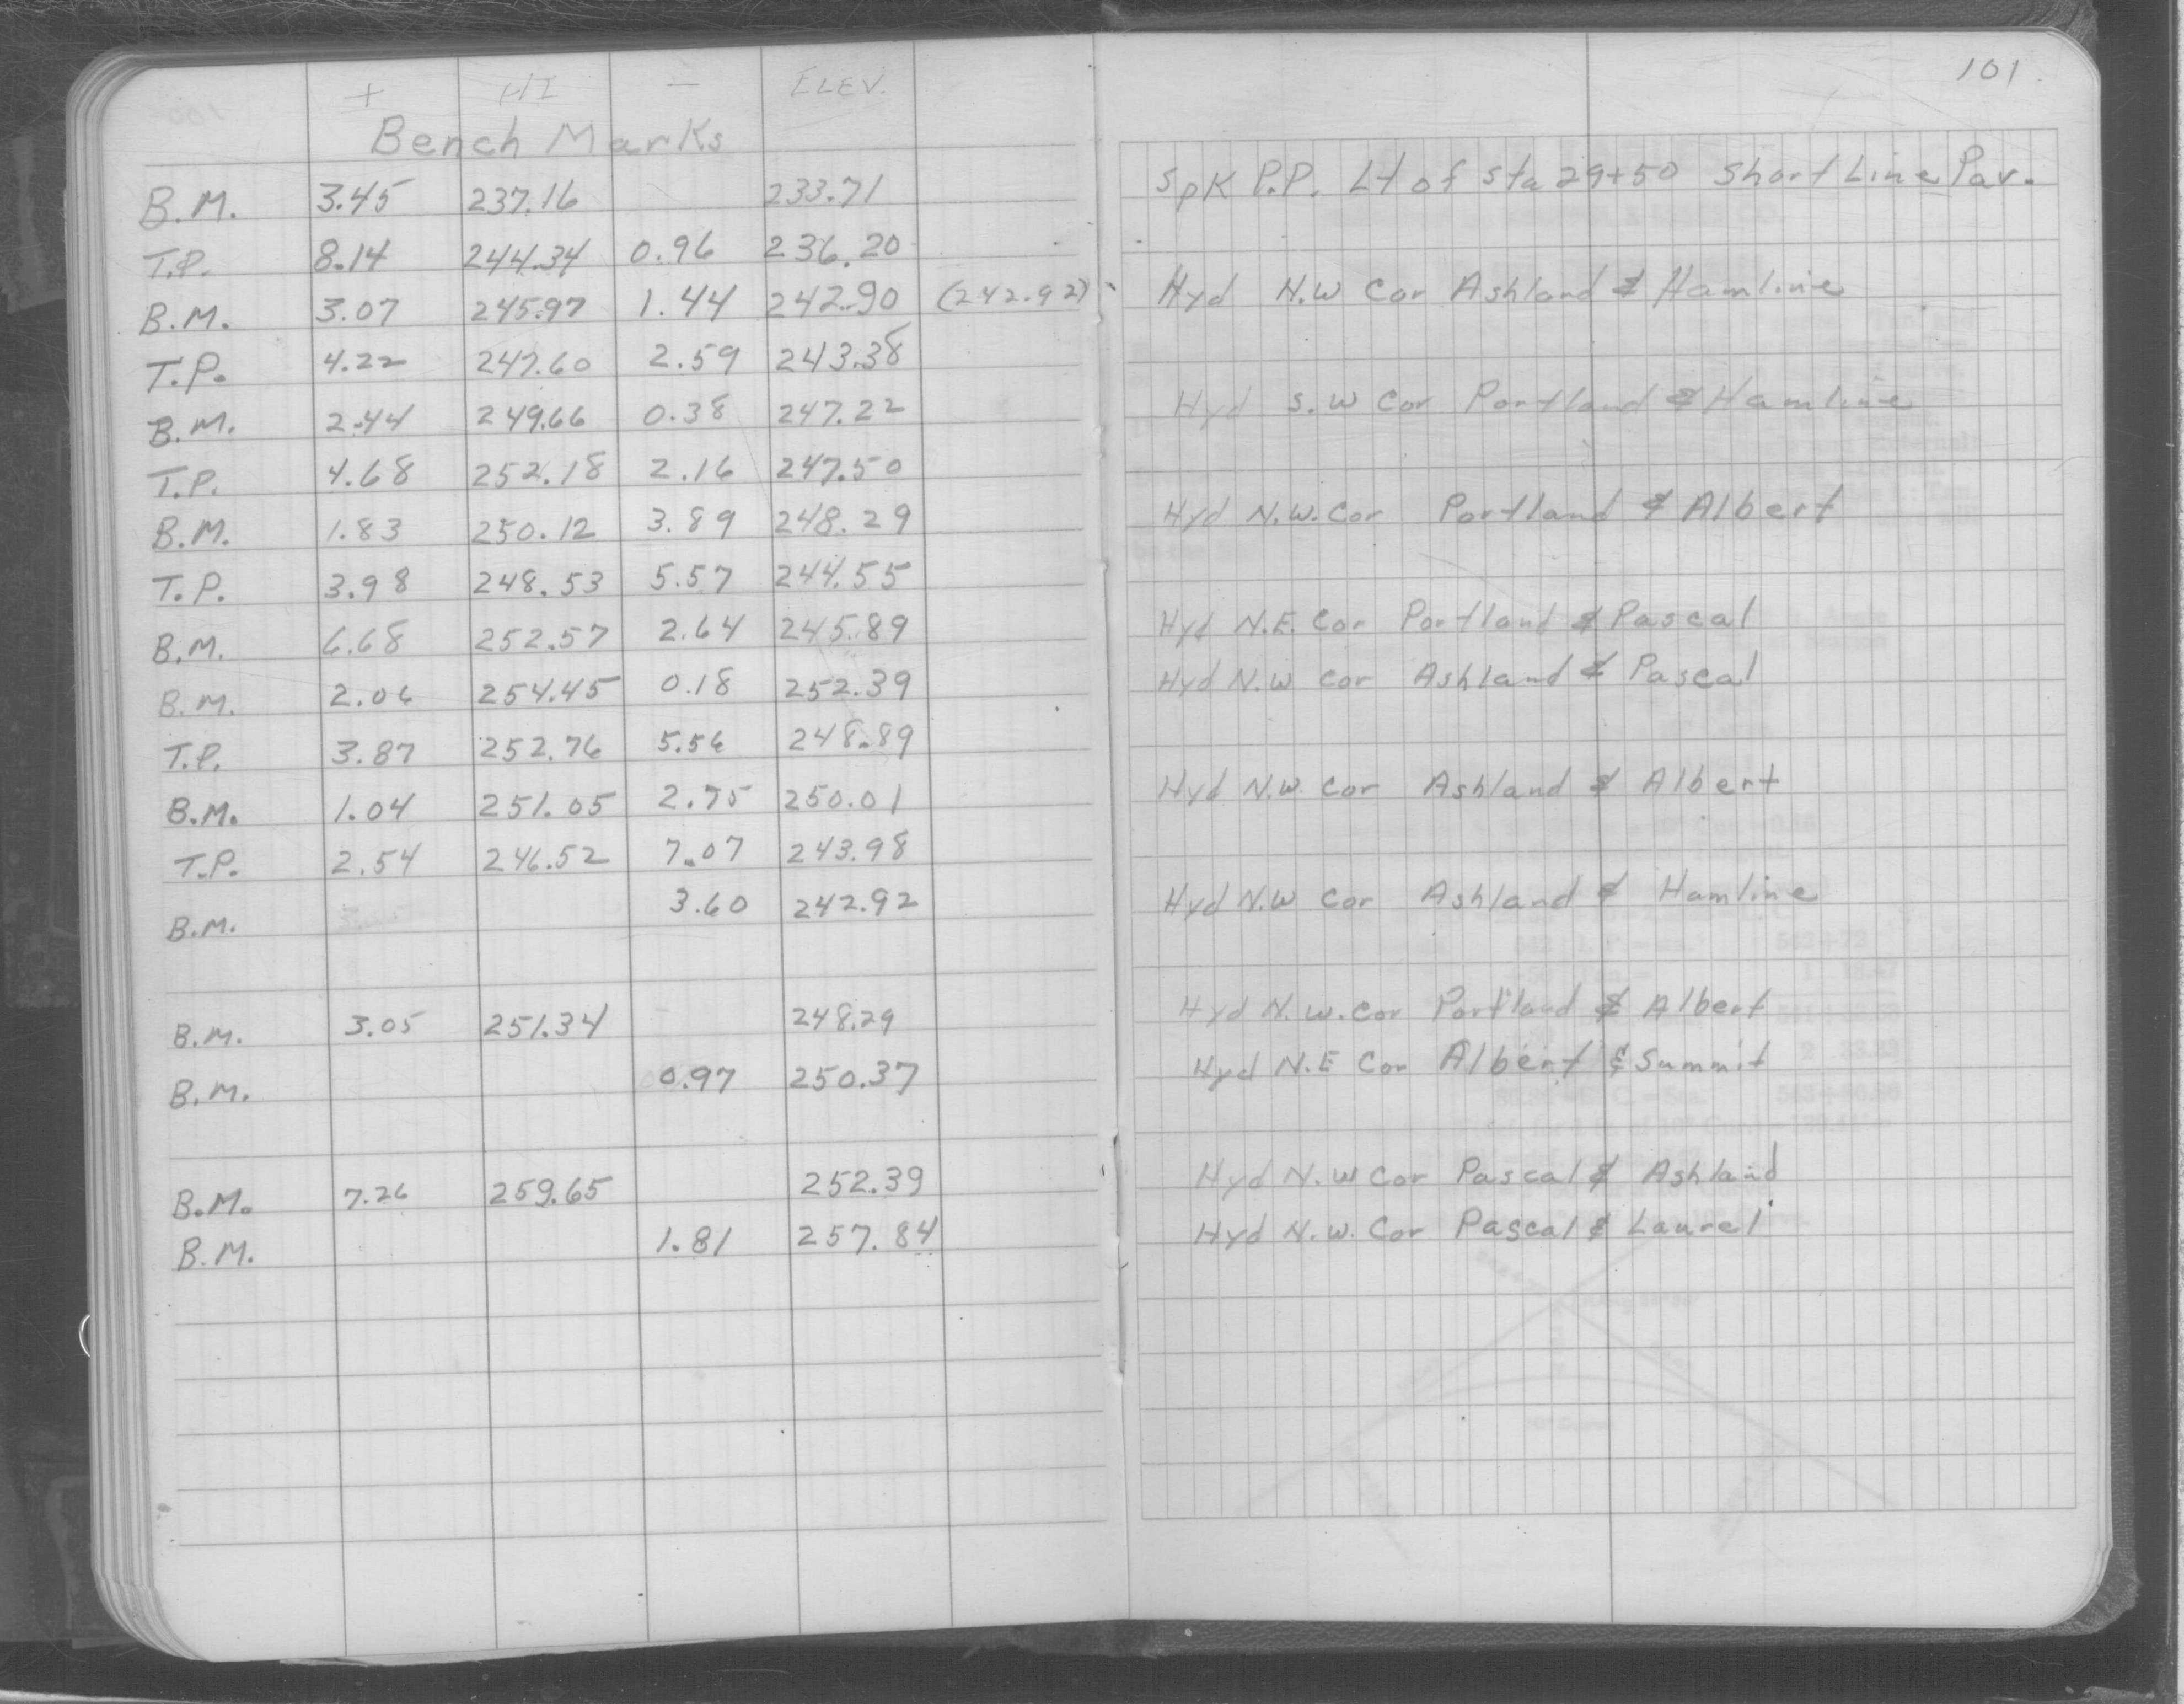 101
+ HI - ELEV.
Bench Marks
B.M. 3.45 237.16 233.71 Spk P.P. Lt of Sta 29+50 Short Line Pav.
T.P. 8.14 244.34 0.96 236.20
B.M. 3.07 245.97 1.44 242.90 (242.92) Hyd N.W Cor Ashland & Hamline
T.P. 4.22 247.60 2.59 243.38
B.M. 2.44 249.66 0.38 247.22 Hyd S.W Cor Portland & Hamline
T.P. 4.68 252.18 2.16 247.50
B.M. 1.83 250.12 3.89 248.29 Hyd N.W. Cor Portland & Albert
T.P. 3.98 248.53 5.57 244.55
B.M. 6.68 252.57 2.64 245.89 Hyd N.E. Cor Portland & Pascal
B.M. 2.06 254.45 0.18 252.39 Hyd N.W Cor Ashland & Pascal
T.P. 3.87 252.76 5.56 248.89
B.M. 1.04 251.05 2.75 250.01 Hyd N.W. Cor Ashland & Albert
T.P. 2.54 246.52 7.07 243.98
B.M. 3.60 242.92 Hyd N.W Cor Ashland & Hamline
B.M. 3.05 251.34 248.29 Hyd N.W. Cor Portland & Albert
B.M. 0.97 250.37 Hyd N.E Cor Albert & Summit
B.M. 7.26 259.65 252.39 Hyd N.W Cor Pascal & Ashland
B.M. 1.81 257.84 Hyd N.W. Cor Pascal & Laurel